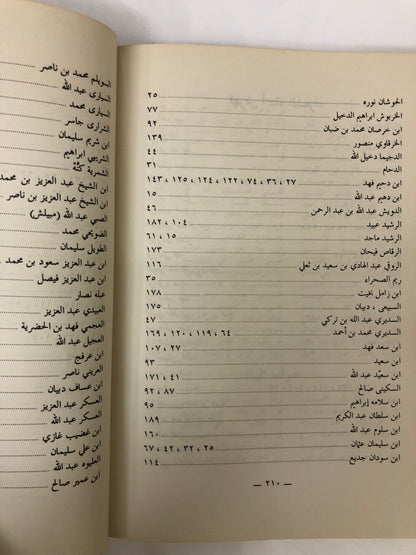 الحوشان نوره ٢٥
الخربوش ابراهيم الدخيل ٧٧
ابن خرصان محمد بن ضبان ٩٢
الخرقلوي منصور ١٣٩
الدجيما دخيل الله ٤٤
الدحام ٣١
ابن دحيم فهد ٢٧ ، ٣٦ ، ٧٤ ، ١٢٢ ، ١٢٤ ، ١٢٥ ، ١٤٣
ابن دهيم عبد الله ١٥
الدويش عبد الله بن عبد الرحمن ٤٦
الرشيد عبيد ١٠٤ ، ١٨٢
الرشيد ماجد ١٥ ، ٦١
الرقاص فيحان ١٧٣
الروقي عبد الهادي بن سعيد بن ثعلي ١١٦
ريم الصحراء ٣٥
ابن زامل بخيت ١٧٨
السبيعي ، دبيان ١٧٥
السديري عبد الله بن تركي ٤٧
السديري محمد بن أحمد ٦٤ ، ١١٩ ، ١٢٠ ، ١٦٩
ابن سعد فهد ٢٧ ، ١٠٧
ابن سعيد ٩٣
ابن سعيّد عبد الله ٤١ ، ١٧١
السكيني صالح ٨٧ ، ٩٢
ابن سلامه إبراهيم ٩٥
ابن سلطان عبد الكريم ١٨٩
ابن سلوم عبد الله ١٦٠
ابن سليمان عثمان ٢٥ ، ٣٢ ، ٤٢ ، ٦٧
ابن سودان جديع ١١٤
— ٢١٠ —
السويلم محمد بن ناصر
السيارى عبد الله
السيارى محمد
الشراري جاسر
ابن شريم سليمان
الشريبي ابراهيم
الشمرية كنّة
ابن الشيخ عبد العزيز بن محمد
ابن الشيخ عبد العزيز بن ناصر
الصبي عبد الله (مبيلش)
الضويحي محمد
الطويل سليمان
ابن عبد العزيز سعود بن محمد
ابن عبد العزيز فيصل
عبله نصار
العبيدي عبد العزيز
العجمي فهد بن الخضرية
العجيل عبد الله
ابن عرفج
العريني ناصر
ابن عساف دبيان
العسكر عبد العزيز
العسكر عبد الله
ابن غضيب غازي
ابن علي سليمان
العليوه عبد الله
ابن عمير صالح